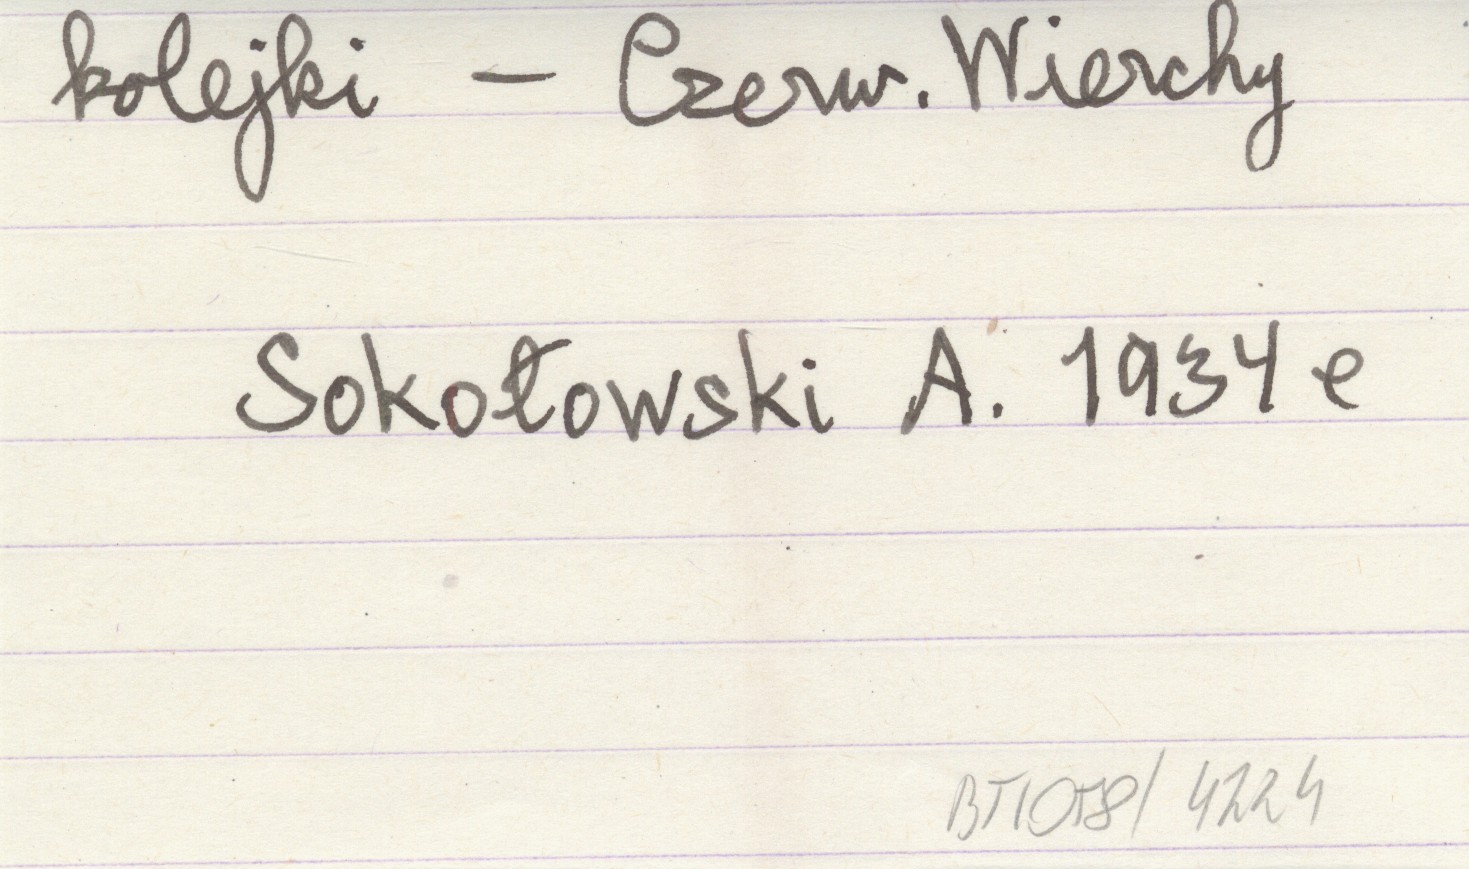 kolejki – Czerw. Wierchy
Sokołowski A. 1934 e
BT1078/ 4224